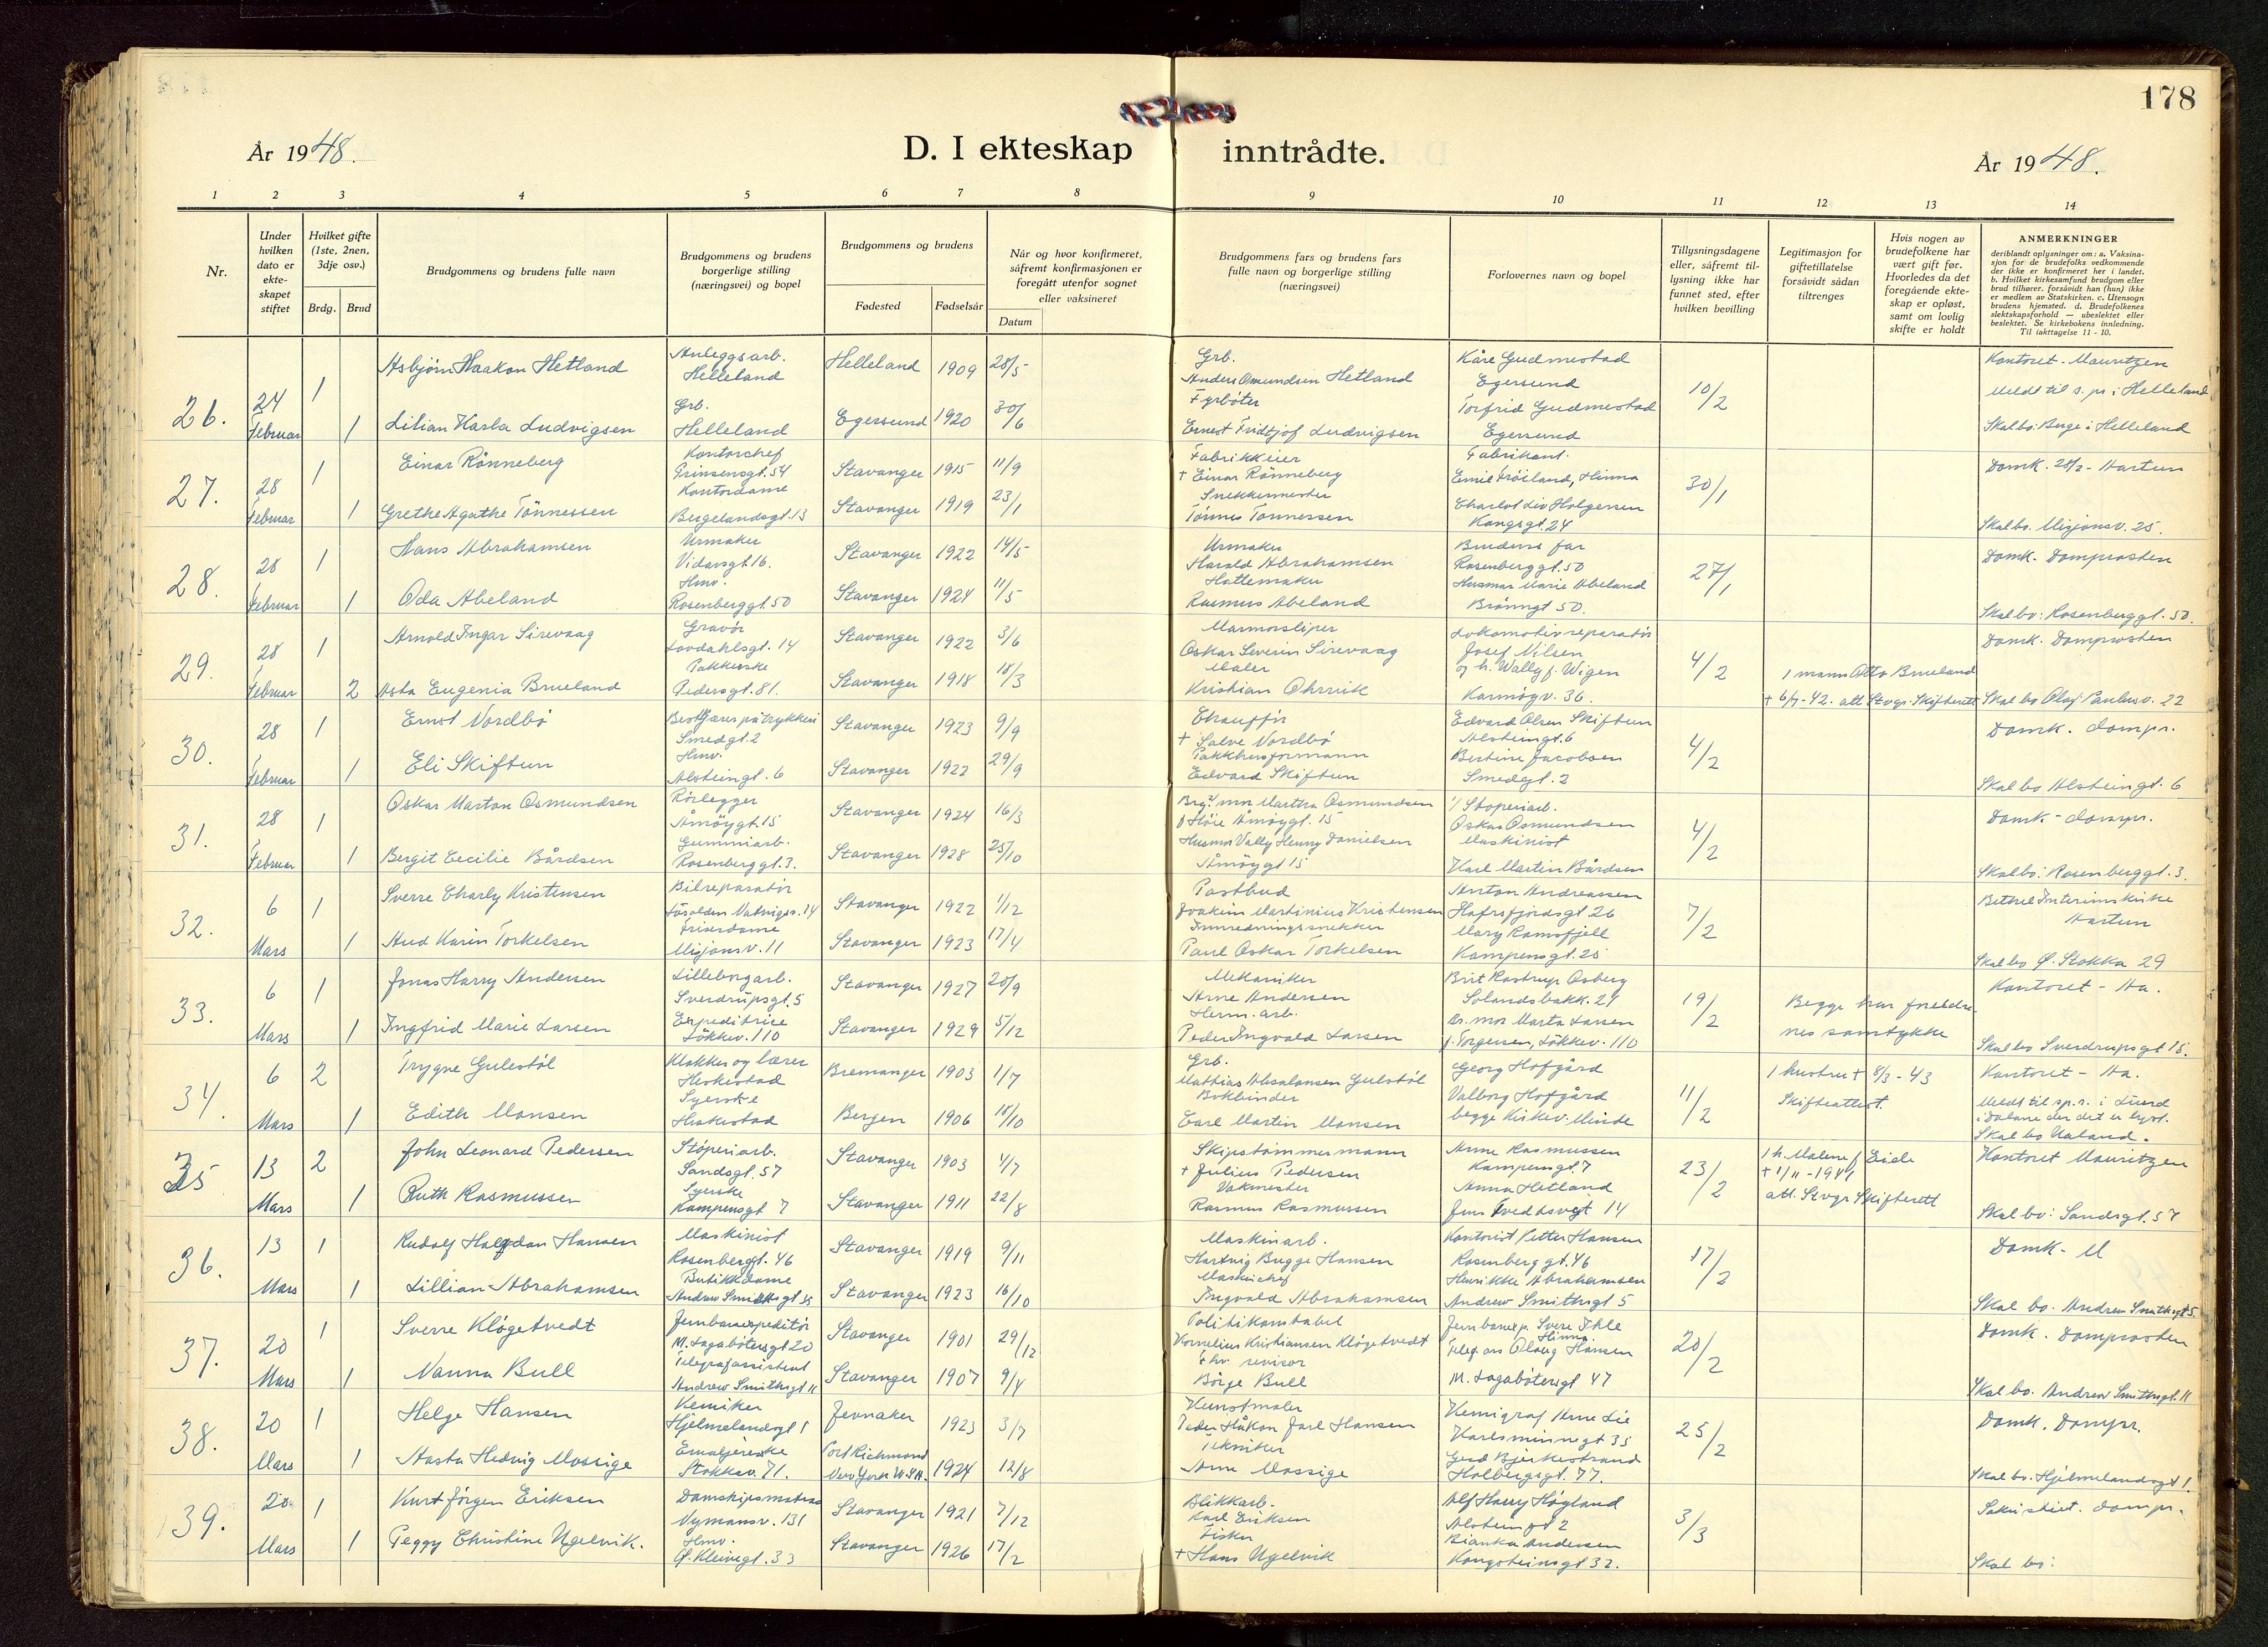 178
År 1948.
D. I ekteskap inntrådte.
År 1948.
1 2 3 4 5 6 7 8 9 10 11 12 13 14
Nr.
Under hvilken dato er ekteskapet stiftet
Hvilket gifte (1ste, 2nen, 3dje osv.)
Brdg. Brud
Brudgommens og brudens fulle navn
Brudgommens og brudens borgerlige stilling (næringsvei) og bopel
Brudgommens og brudens
Fødested Fødselsår
Når og hvor konfirmeret, såfremt konfirmasjonen er foregått utenfor sognet eller vaksineret
Datum
Brudgommens fars og brudens fars fulle navn og borgerlige stilling (næringsvei)
Forlovernes navn og bopel
Tillysningsdagene eller, såfremt tillysning ikke har funnet sted, efter hvilken bevilling
Legitimasjon for giftetillatelse forsåvidt sådan tiltrenges
Hvis nogen av brudefolkene har vært gift før. Hvorledes da det foregående ekteskap er opløst, samt om lovlig skifte er holdt
ANMERKNINGER
deriblandt oplysninger om: a. Vaksinasjon for de brudefolks vedkommende der ikke er konfirmeret her i landet. b. Hvilket kirkesamfund brudgom eller brud tilhører, forsåvidt han (hun) ikke er medlem av Statskirken. c. Utensogn brudens hjemsted. d. Brudefolkenes slektskapsforhold — ubeslektet eller beslektet. Se kirkebokens innledning. Til iakttagelse 11 - 10.
26. 24 Februar
1 Asbjørn Haakon Hetland Anleggsarb. Helleland Helleland 1909 28/5 Grb. Anders Omundsen Hetland Kåre Gudmestad Egersund 10/2 Kontoret - Mauritzen
Meldt til s.pr. i Helleland
1 Lilian Karla Ludvigsen Grb. Helleland Egersund 1920 30/6 Fyrbøter Ernest Fridtjof Ludvigsen Torfrid Gudmestad Egersund Skal bo: Buge i Helleland
27. 28 Februar
1 Einar Rönneberg Kontorchef Prinsensgt. 54 Stavanger 1915 11/9 Fabrikkeier + Einar Rönneberg Fabrikant. Emil Fröiland, Hinna 30/1 Domk. 28/2 - Hartun
1 Grethe Agathe Tönnessen Kontordame Bergelandsgt. 13 Stavanger 1919 23/1 Snekkermester Tönnes Tönnessen Charlot Liv Holgersen Kongsgt. 24 Skal bo. Misjonsv. 25.
28. 28 Februar
1 Hans Abrahamsen Urmaker Vidarsgt. 16. Stavanger 1922 14/5 Urmaker Harald Abrahamsen Brudens far Rosenberggt. 50 27/1 Domk. Domprosten
1 Oda Abeland Hmv. Rosenberggt. 50 Stavanger 1924 11/5 Hattemaker Rasmus Abeland Husmor Marie Abeland Brönngt 50. Skal bo: Rosenberggt. 50.
29. 28 Februar
1 Arnold Ingar Sirevaag Gravör Lovdahlsgt. 14 Stavanger 1922 3/6 Marmorsliper Oskar Severin Sirevaag Lokomotivreparatör Josef Nilsen 4/2 Domk. Domprosten
2 Asta Eugenia Brueland Pakkerske Pedersgt. 81. Stavanger 1918 18/3 Maler Kristian Ohrvik og h. Wally f. Wigen Karmögv. 36. 1 mann Otto Brueland + 6/7-42. att Stvgr. Skifterett Skal bo Olaf Paulusv. 22
30. 28 Februar
1 Ernst Nordbö Smedgt. 2 Stavanger 1923 9/9 Chaufför + Salve Nordbö Edvard Olsen Skiftun Alsteingt. 6 4/2 Domk. dompr.
1 Eli Skiftun Hmv. Alsteingt. 6 Stavanger 1922 29/9 Pakkhusformann Edvard Skiftun Bertine Jacobsen Smedgt. 2 Skal bo Alsteingt. 6
31. 28 Februar
1 Oskar Marton Osmundsen Rörlegger Åmöygt. 15 Stavanger 1924 16/3 mor Martha Osmundsen f. Höie Åmöygt. 15 Stoperiarb. Oskar Osmundsen 4/2 Domk - dompr.
1 Bergit Cecilie Bårdsen Gummiarb. Rosenberggt. 3. Stavanger 1928 25/10 Husmor Vally Henny Danielsen Åmöygt 15 Maskinist Karl Martin Bårdsen Skal bo: Rosenberggt. 3.
32. 6 Mars
1 Sverre Charly Kristensen Bilreparatör Stavanger 1922 1/12 Postbud Joakim Martinius Kristensen Anton Andreassen Hafrsfjordsgt 26 7/2 Bethel Interimskirke Hartun
1 Aud Karin Torkelsen Friserdame Misjonsv. 11 Stavanger 1923 17/4 Innredningssnekker Paul Oskar Torkelsen Mary Ramsfjell Kampensgt. 25 Skal bo Ø. Stokka 29
33. 6 Mars
1 Jonas Harry Andersen Lilleborgarb. Sverdrupsgt. 5 Stavanger 1927 20/9 Mekaniker Arne Andersen Brit Rostrup Osberg Solandsbakk. 21 19/2 Begge har foreldrenes samtykke Kontoret - Ha.
1 Ingfrid Marie Larsen Expeditrice Lökkev. 110 Stavanger 1929 5/12 Herm. arb. Peder Ingvald Larsen Br. mor Marta Larsen f. Torgersen, Lökkev. 110 Skal bo Sverdrupsgt 15.
34. 6 Mars
2 Trygve Gulestöl Klokker og lærer Heskestad Bremanger 1903 1/7 Grb. Mathias Absalonsen Gulestöl Georg Hofgård 11/2 1 hustru + 8/3-43 Skifteattest. Kontoret - Ha.
1 Edith Monsen Syerske Heskestad Bergen 1906 18/10 Bokbinder Carl Martin Monsen Valborg Hofgård begge Kirkev. Minde Meldt til sp.r. i Lund i Dalane der det er lyst. Skal bo Ualand.
35 13 Mars
2 John Leonard Pedersen Støperiarb. Sandsgt. 57 Stavanger 1903 4/7 Skipstømmermann + Julius Pedersen Anne Rasmussen Kampensgt. 7 23/2 1 h. Malene f. Eide + 1/11-1941 att. Stvgr Skifterett Kontoret Mauritzen
1 Ruth Rasmussen Syerske Kampensgt 7 Stavanger 1911 22/8 Vakmester Rasmus Rasmussen Anna Hetland Jens Tvedtsvgt 14 Skal bo: Sandsgt. 57
36. 13 Mars
1 Rudolf Halfdan Hansen Maskinist Rosenberggt. 46 Stavanger 1919 9/11 Maskinarb. Hartvig Bugge Hansen Kontorist Petter Hansen Rosenberggt. 46 17/2 Domk - M
1 Lillian Abrahamsen Butikkdame Andrew Smithsgt 35 Stavanger 1923 16/10 Maskinchef Ingvald Abrahamsen Henrikke Abrahamsen Andrew Smithsgt 5 Skal bo. Andrew Smithsgt 5.
37. 20 Mars
1 Sverre Klögetvedt Jernbaneexpeditör M. Lagabötersgt 20 Stavanger 1901 29/12 Politikonstabel Kornelius Kristiansen Klögetvedt Jernbaneexp. Sverre Ihle Hinna. 20/2 Domk. Domprosten
1 Nanna Bull Telegrafassistent Andrew Smithsgt 11 Stavanger 1907 9/4 fhv. revisor Börge Bull Teleg. ass Olaug Hansen M. Lagabötersgt 47 Skal bo. Andrew Smithsgt. 11
38. 20 Mars
1 Helge Hansen Kemiker Hjelmelandsgt 1 Jevnaker 1923 3/7 Kunstmaler Peder Håkon Jarl Hansen Kemigraf Arne Lie Karlsminnegt 35 25/2 Domk. Dompr.
1 Aasta Hedvig Mossige Emaljérerske Stokkav. 71. Port Richmond New York U.S.A. 1924 12/8 Tekniker Arne Mossige Gerd Bjerkestrand Holbergsgt. 77. Skal bo. Hjelmelandsgt 1.
39. 20 Mars
1 Kurt Jörgen Eriksen Damskipsmatros Nymansv. 131 Stavanger 1921 7/12 Blikkarb. Karl Eriksen Alf Harry Högland Alstein gt 2 3/3 Sakristiet. dompr.
1 Peggy Christine Ugelvik. Hmv. Ø. Kleivegt. 33 Stavanger 1926 17/2 Fisker + Hans Ugelvik Bianka Andersen Kongsteinsgt 32. Skal bo: